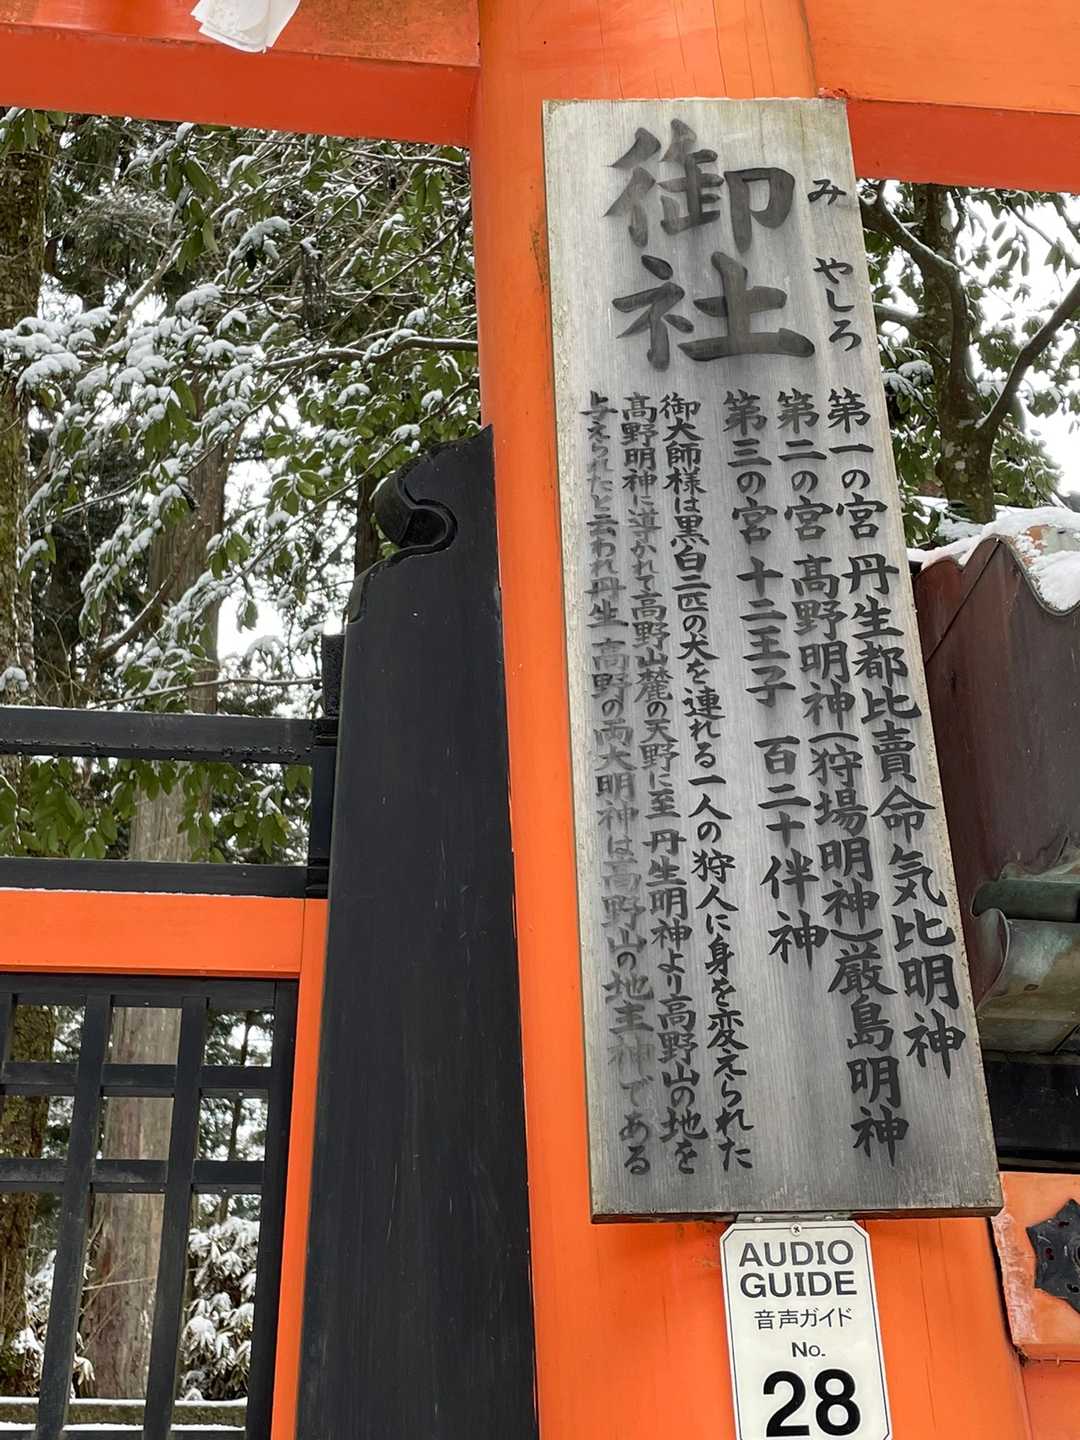 御社
みやしろ
第一の宮 丹生都比賣命気比明神
第二の宮 高野明神(狩場明神)厳島明神
第三の宮 十二王子 百二十伴神
御大師様は黒白二匹の犬を連れる一人の狩人に身を変えられた
高野明神に導かれて高野山麓の天野に至 丹生明神より高野山の地を
与えられたと云われ丹生 高野の両大明神は高野山の地主神である
AUDIO
GUIDE
音声ガイド
No.
28